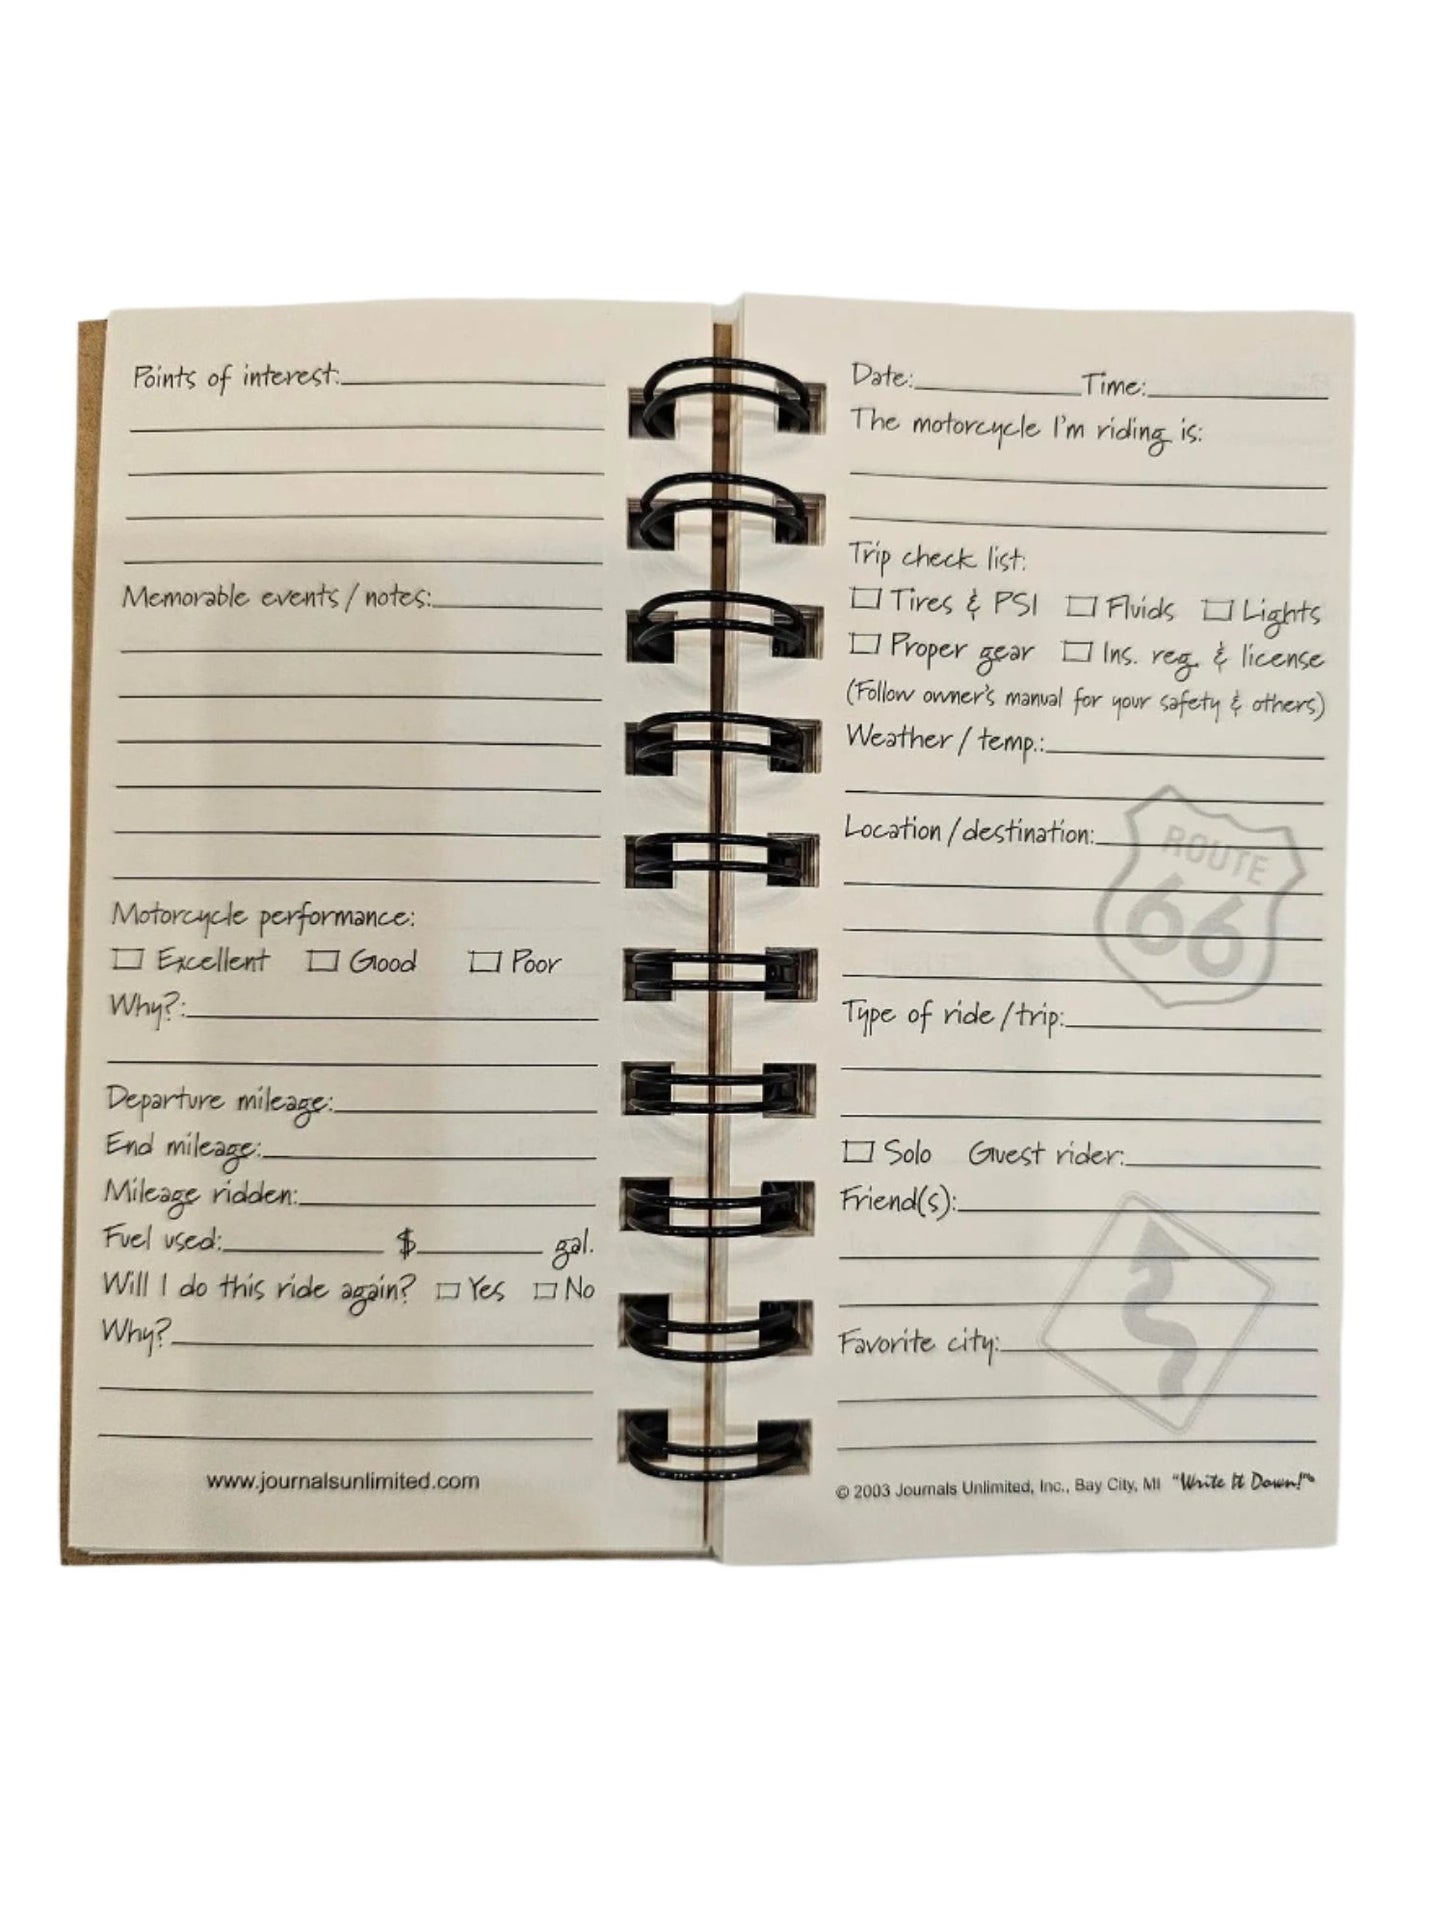 Points of interest:
Memorable events/notes:
Motorcycle performance:
Excellent Good Poor
Why?:
Departure mileage:
End mileage:
Mileage ridden:
Fuel used: $ gal.
Will I do this ride again? Yes No
Why?
www.journalsunlimited.com
Date: Time:
The motorcycle I'm riding is:
Trip check list:
Tires & PSI Fluids Lights
Proper gear Ins. reg. & license
(Follow owner's manual for your safety & others)
Weather/temp.:
Location/destination:
ROUTE
66
Type of ride/trip:
Solo Guest rider:
Friend(s):
Favorite city:
© 2003 Journals Unlimited, Inc., Bay City, MI "Write It Down!"®